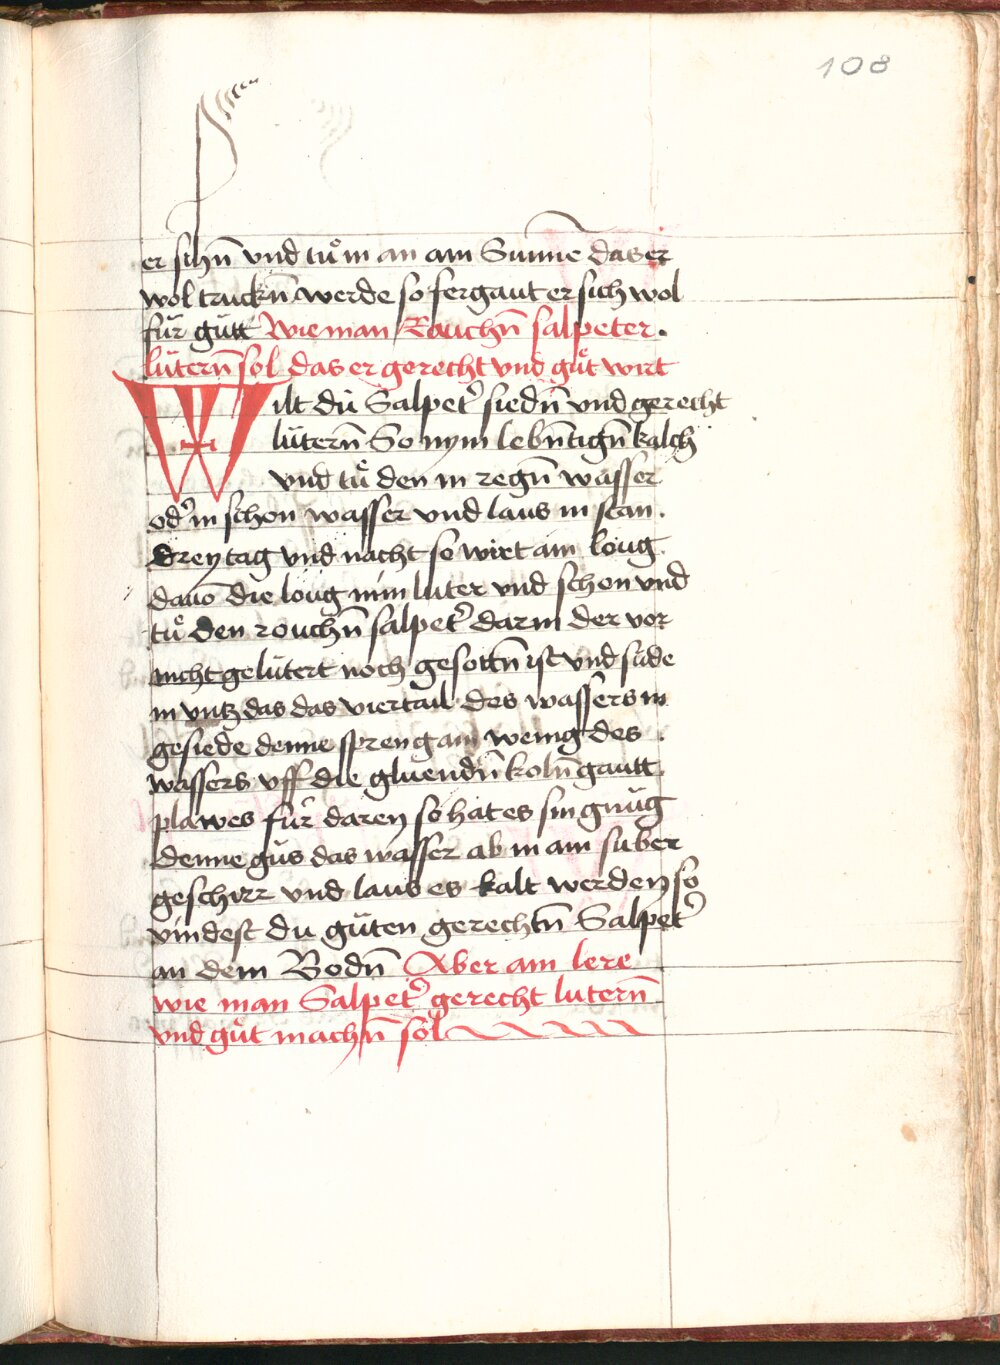 108
er schn̄ vnd tuͦ in an ain Sunne das er
wol truckn̄ werde so fergaut er sich wol
für gütt Wie man Rouchn̄ salpeter.
lütern̄ sol das er gerecht vnd guͦt wirt
Wilt dü Salpet' siedn̄ vnd gerecht
lütern̄ So nym lebn̄tign̄ kalch
vnd tuͦ den in regn̄ wasser
od' in schon wasser vnd laus in stan.
drey tag vnd nacht so wirt ain loug
dauō die loug nim luter vnd schon vnd
tuͦ den rouchn̄ salpet' darin der vor
nicht gelütert noch gesottn̄ ist vnd süde
in vntz das das viertail des wassers in
gesiede denne spreng ain wenig des
wassers vff die gluendn̄ koln̄ gautt
plawes für daren so hat es sin gnüg
denne güs das wasser ab in ain suber
geschirr vnd laus es kalt werden so
vindest du güten gerechtn̄ Salpet'
an dem Bodn̄ Aber ain lere
wie man Salpet' gerecht lutern̄
vnd guͦt machn̄ söl